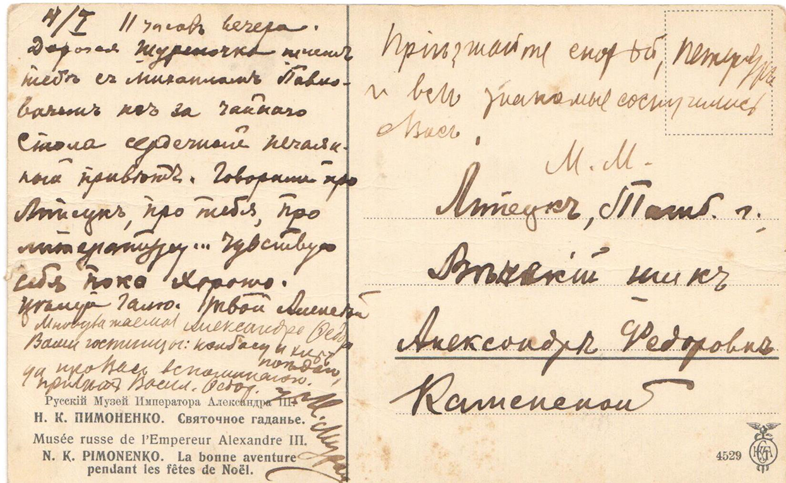 4/I 11 часовъ вечера.
Дорогая Шурочка шлемъ
тебѣ съ Михаиломъ Павло-
вичемъ изъ за чайнаго
стола сердечный
привѣтъ. Говорили про
Липецкъ, про тебя, про
литературу... Чувствую
себя пока хорошо.
Цѣлуй Галю. Твой Алексѣй
Многоуважаемая Александра Ѳедор
Ваши гостинцы: колбасу и хлѣбъ
да про Васъ вспоминаемъ.
Русскій Музей Императора Александра III.
Н. К. ПИМОНЕНКО. Святочное гаданье.
Musée russe de l'Empereur Alexandre III.
N. K. PIMONENKO. La bonne aventure
pendant les fêtes de Noël.
Пріѣзжайте скорѣй, Петербургъ
и всѣ знакомые соскучились
М. М.
Липецкъ, Тамб. г.
Александрѣ Федоровнѣ
Каменской
4529